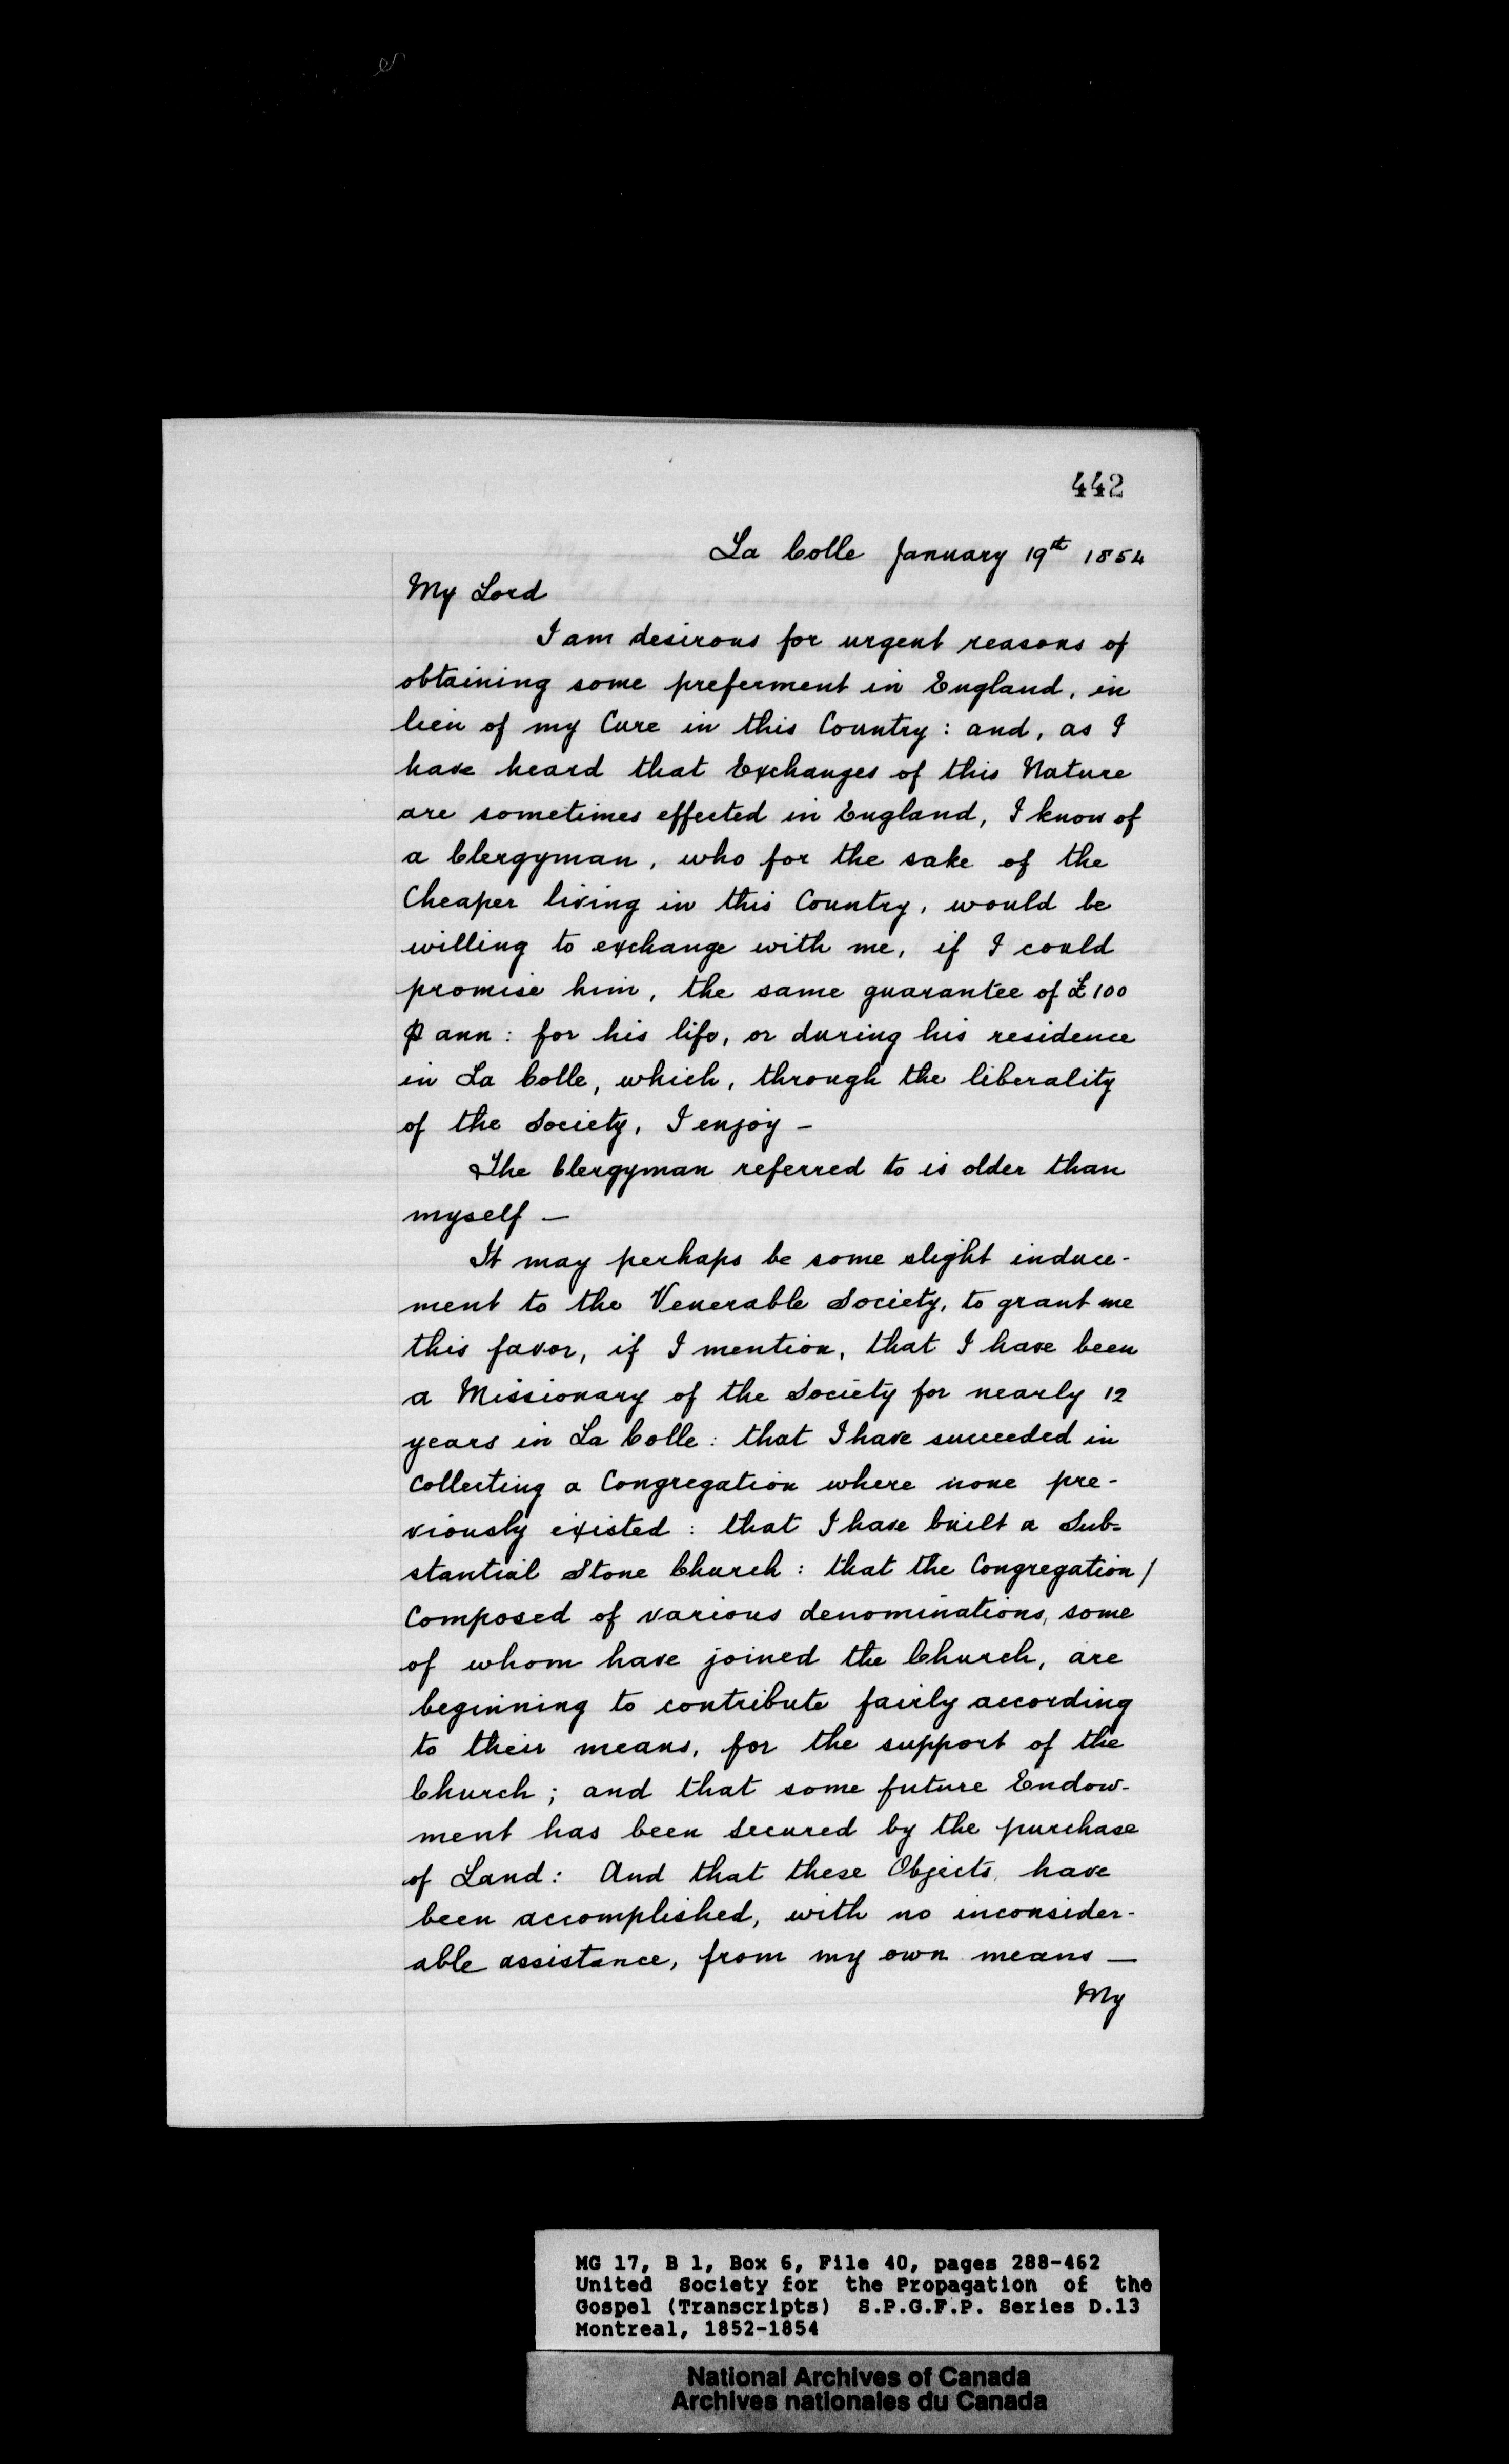 442
La Colle January 19th 1854
My Lord
I am desirous for urgent reasons of
obtaining some preferment in England, in
lieu of my Cure in this Country: and, as I
have heard that Exchanges of this Nature
are sometimes effected in England, I know of
a Clergyman, who for the sake of the
Cheaper living in this Country, would be
willing to exchange with me, if I could
promise him, the same guarantee of £100
⅌ ann: for his life, or during his residence
in La Colle, which, through the liberality
of the Society, I enjoy —
The Clergyman referred to is older than
myself —
It may perhaps be some slight induce-
ment to the Venerable Society, to grant me
this favor, if I mention, that I have been
a Missionary of the Society for nearly 12
years in La Colle: that I have succeeded in
Collecting a Congregation where none pre-
viously existed: that I have built a Sub-
stantial Stone Church: that the Congregation /
Composed of various denominations, some
of whom have joined the Church, are
beginning to contribute fairly according
to their means, for the support of the
Church; and that some future Endow-
ment has been secured by the purchase
of Land: And that these Objects, have
been accomplished, with no inconsider-
able assistance, from my own means —
My
MG 17, B 1, Box 6, File 40, pages 288-462
United Society for the Propagation of the
Gospel (Transcripts) S.P.G.F.P. Series D.13
Montreal, 1852-1854
National Archives of Canada
Archives nationales du Canada